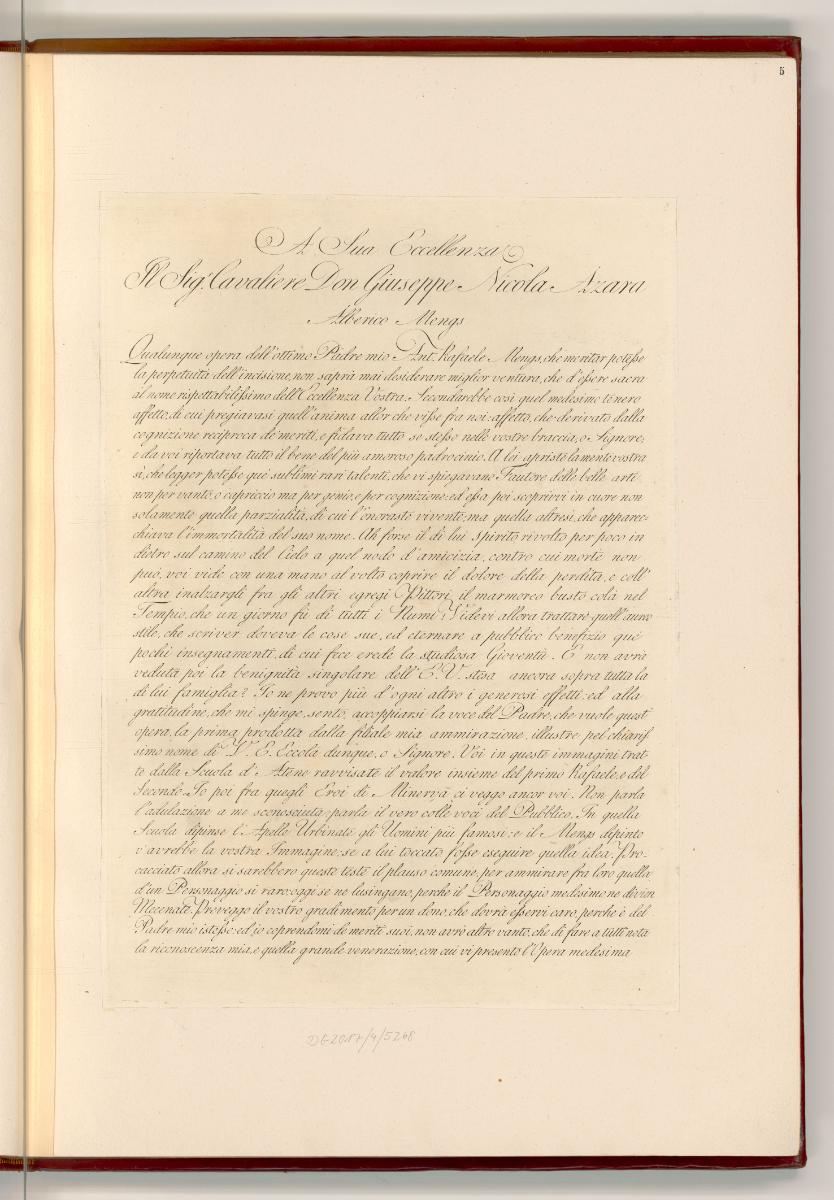 5
A Sua Eccellenza
Il Sig.r Cavaliere Don Giuseppe Nicola Azara
Alberico Mengs
Qualunque opera dell'ottimo Padre mio Ant. Rafaele Mengs, che meritar potesse
la perpetuità dell'incisione, non saprà mai desiderare miglior ventura, che d'essere sacra
al nome rispettabilissimo dell'Eccellenza Vostra. Secondarebbe così quel medesimo tenero
affetto, di cui pregiavasi quell'anima allor che visse fra noi: affetto, che derivato dalla
cognizione reciproca de' meriti, e fidava tutto se stesso nelle vostre braccia, o Signore;
e da voi riportava tutto il bene del più amoroso padrocinio. A lui apriste la mente vostra
sì, che legger potesse que' sublimi rari talenti, che vi spiegavano Fautore delle belle arti
non per vanto, o capriccio ma per genio, e per cognizione: ed essa poi scoprivvi in cuore non
solamente quella parzialità, di cui l'onoraste vivente; ma quella altresì, che apparec-
chiava l'immortalità del suo nome. Ah forse il di lui spirito rivolto per poco in
dietro sul camino del Cielo a quel nodo d'amicizia, contro cui morte non
può, voi vide con una mano al volto coprire il dolore della perdita, e coll'
altra inalzargli fra gli altri egregi Pittori il marmoreo busto colà nel
Tempio, che un giorno fù di tutti i Numi. Videvi allora trattare quell'aureo
stile, che scriver doveva le cose sue, ed eternare a pubblico benefizio que'
pochi insegnamenti, di cui fece erede la studiosa Gioventù. E non avrà
veduta poi la benignità singolare dell'E. V. stesa ancora sopra tutta la
di lui famiglia? Io ne provo più d'ogni altro i generosi effetti: ed alla
gratitudine, che mi spinge, sento, accoppiarsi la voce del Padre, che vuole quest'
opera, la prima prodotta dalla filiale mia ammirazione, illustre pel chiaris
simo nome di V. E. Eccola dunque, o Signore. Voi in queste immagini trat-
te dalla Scuola d'Atene ravvisate il valore insieme del primo Rafaele, e del
Secondo. Io poi fra quegli Eroi di Minerva ci veggo ancor voi. Non parla
l'adulazione a me sconosciuta; parla il vero colle voci del Pubblico. In quella
Scuola dipinse l'Apelle Urbinate gli Uomini più famosi: e il Mengs dipinto
v'avrebbe la vostra Immagine, se a lui toccato fosse eseguire quella idea. Pro-
cacciato allora si sarebbero queste teste il plauso comune, per ammirare fra loro quella
d'un Personaggio sì raro: oggi se ne lusingano, perchè il Personaggio medesimo ne divien
Mecenate. Preveggo il vostro gradimento per un dono, che dovrà esservi caro, perche è del
Padre mio istesso: ed io coprendomi de' meriti suoi, non avrò altro vanto, che di fare a tutti nota
la riconoscenza mia, e quella grande venerazione, con cui vi presento l'Opera medesima
DG2017/4/5268